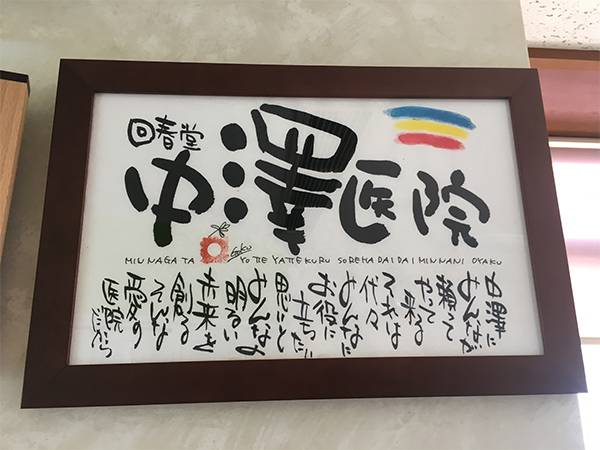 回春堂
中澤医院
MINNAGA TA YOTTE YATTE KURU SOREHA DAI DAI MINNANI OYAKU
中澤に
みんなが
頼って
やって来る
それは
代々
みんなに
お役に
立ちたい
思いと
みんなの
明るい
未来を
創る
そんな
愛の
医院だから